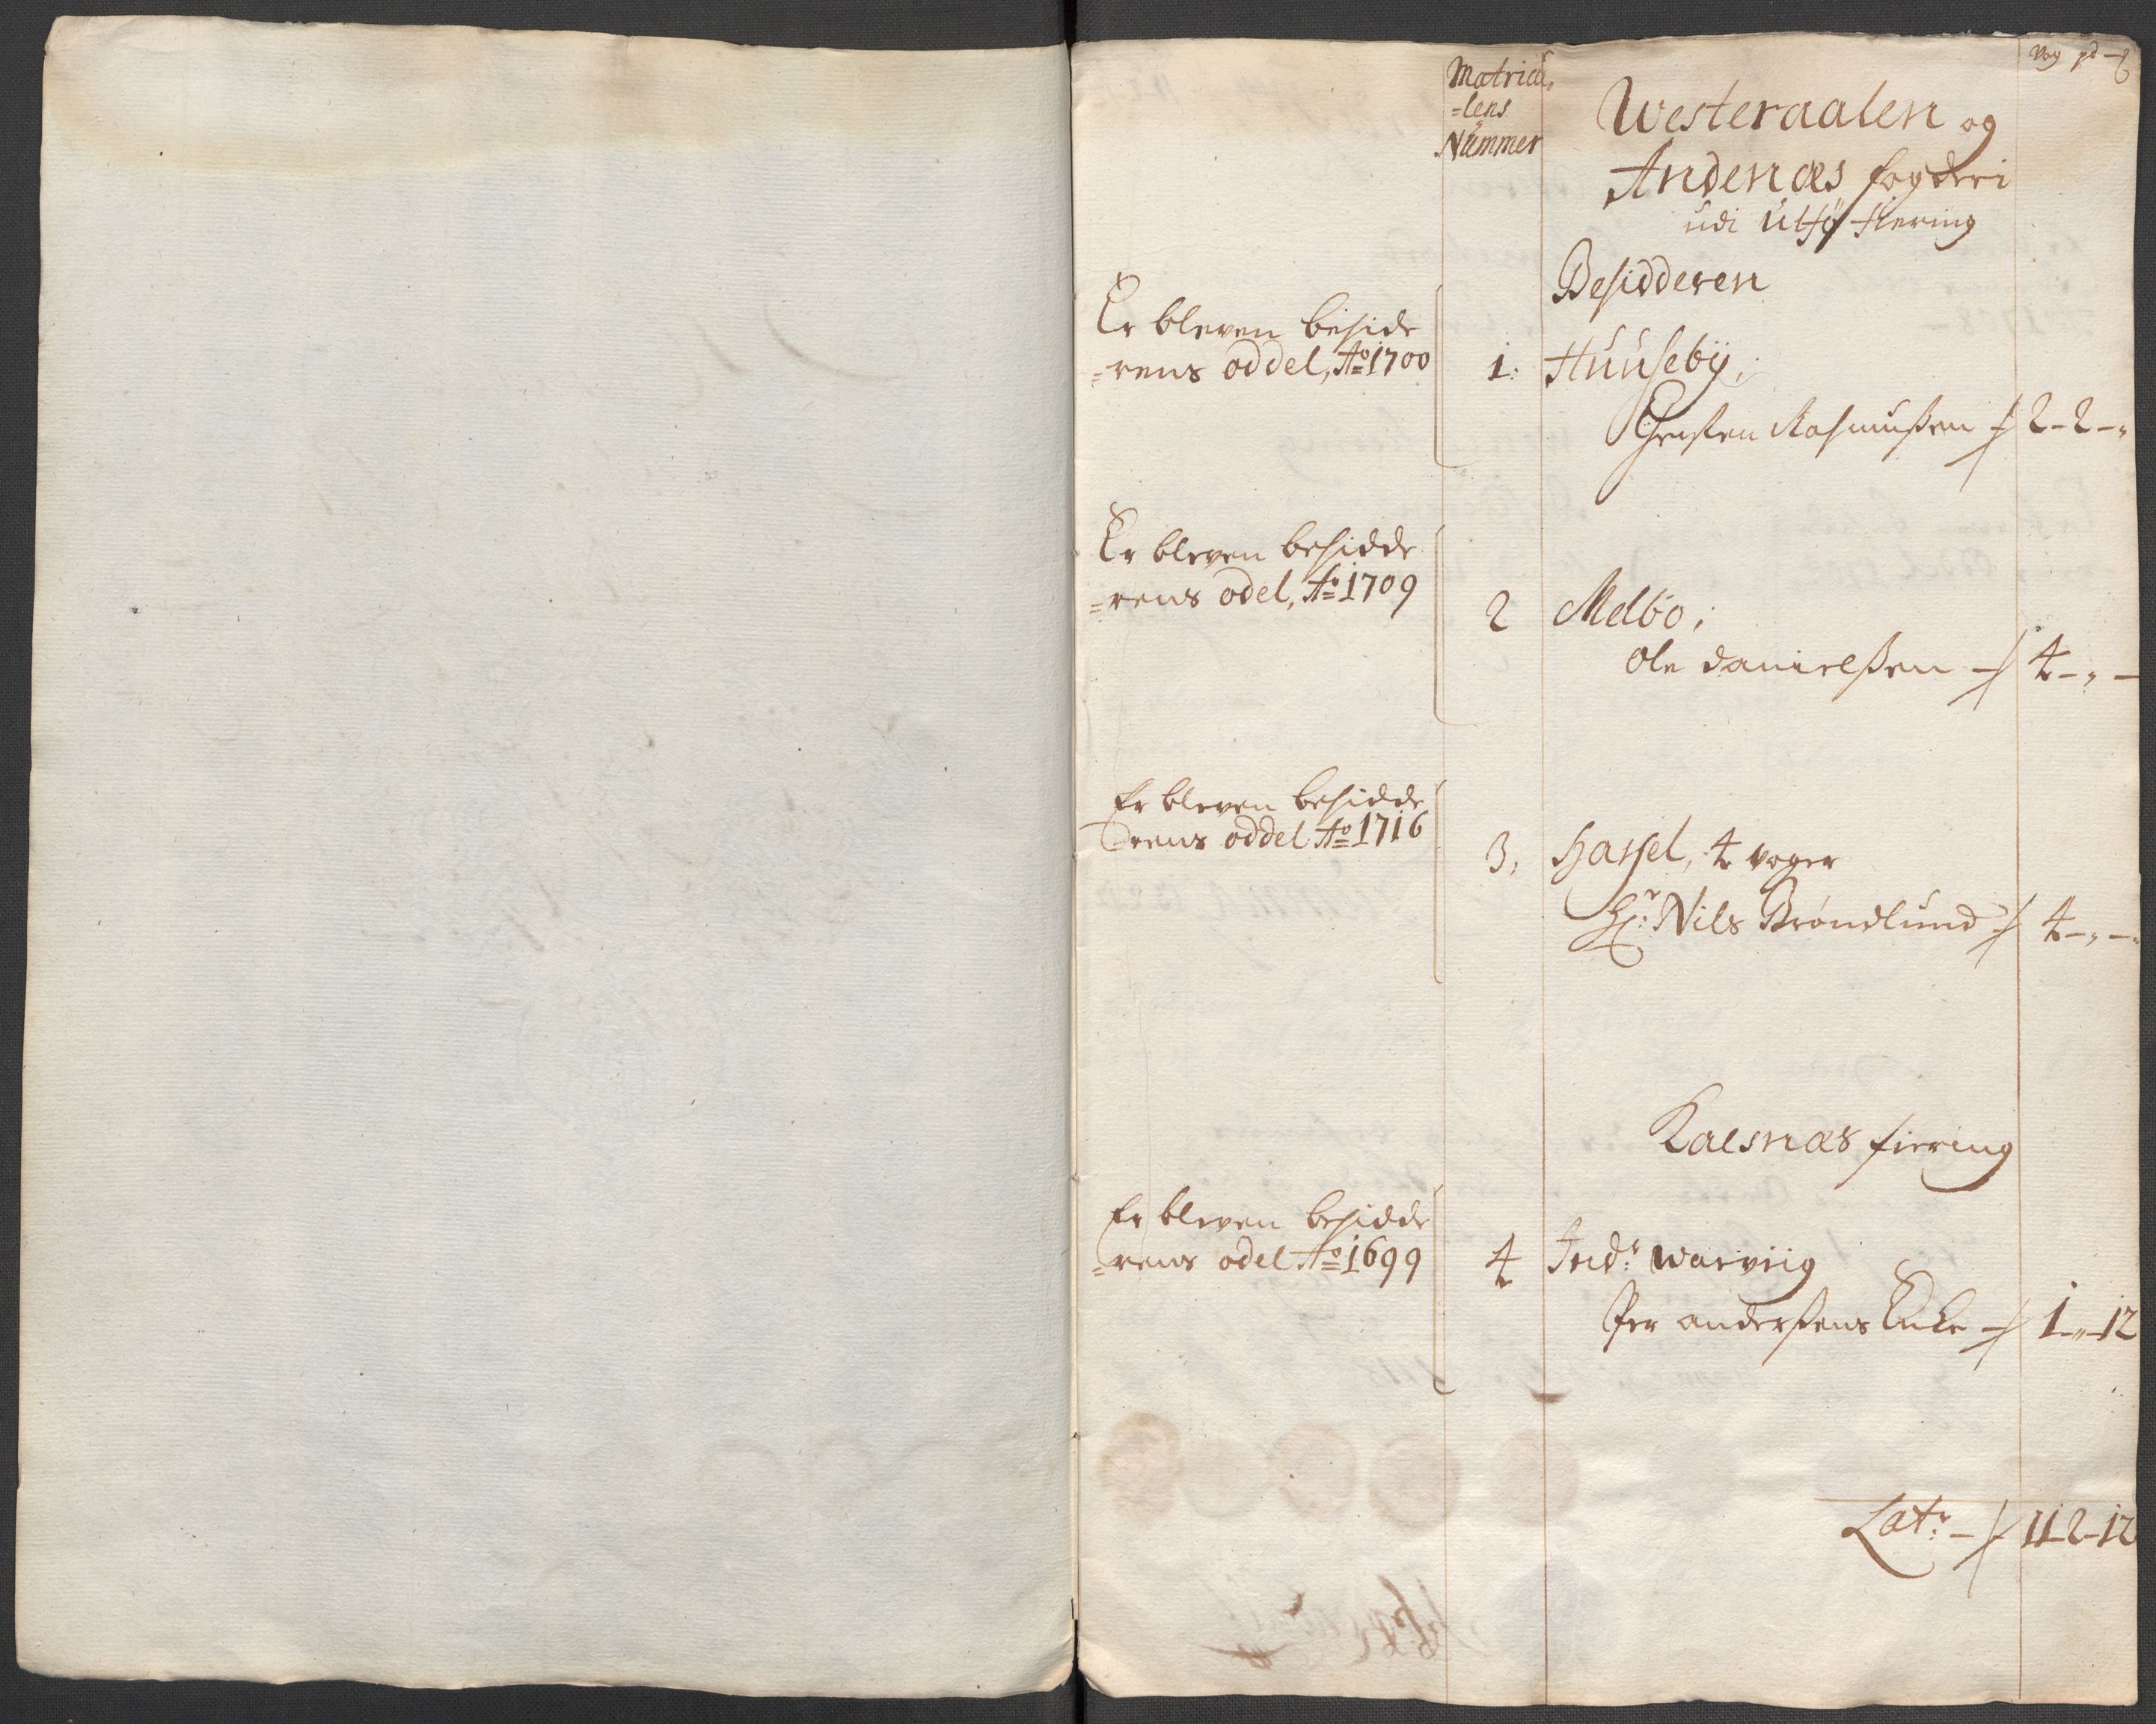 Matricu
=lens
Nummer
Vog pd
Westeraalen og
Andenæs fogderi
udi Ulfø fiering
Besidderen
Er bleven beside
=rens oddel, Ao 1700
1: Huuseby;
Christen Rasmussen 2 - 2 - "
Er bleven besidde
=rens odel, Ao 1709
2 Melbo;
Ole Danielssen 4 - " -
Er bleven besidde
=rens oddel Ao 1716
3, Hassel, 4 voger
Hr: Nils Brøndlund 4 - " - "
Kalsnæs fiering
Er bleven besidde
=rens odel Ao 1699
4 Indr: Warviig
Per anderssens Enke 1 - " - 12
Latr: 11 - 2 - 12